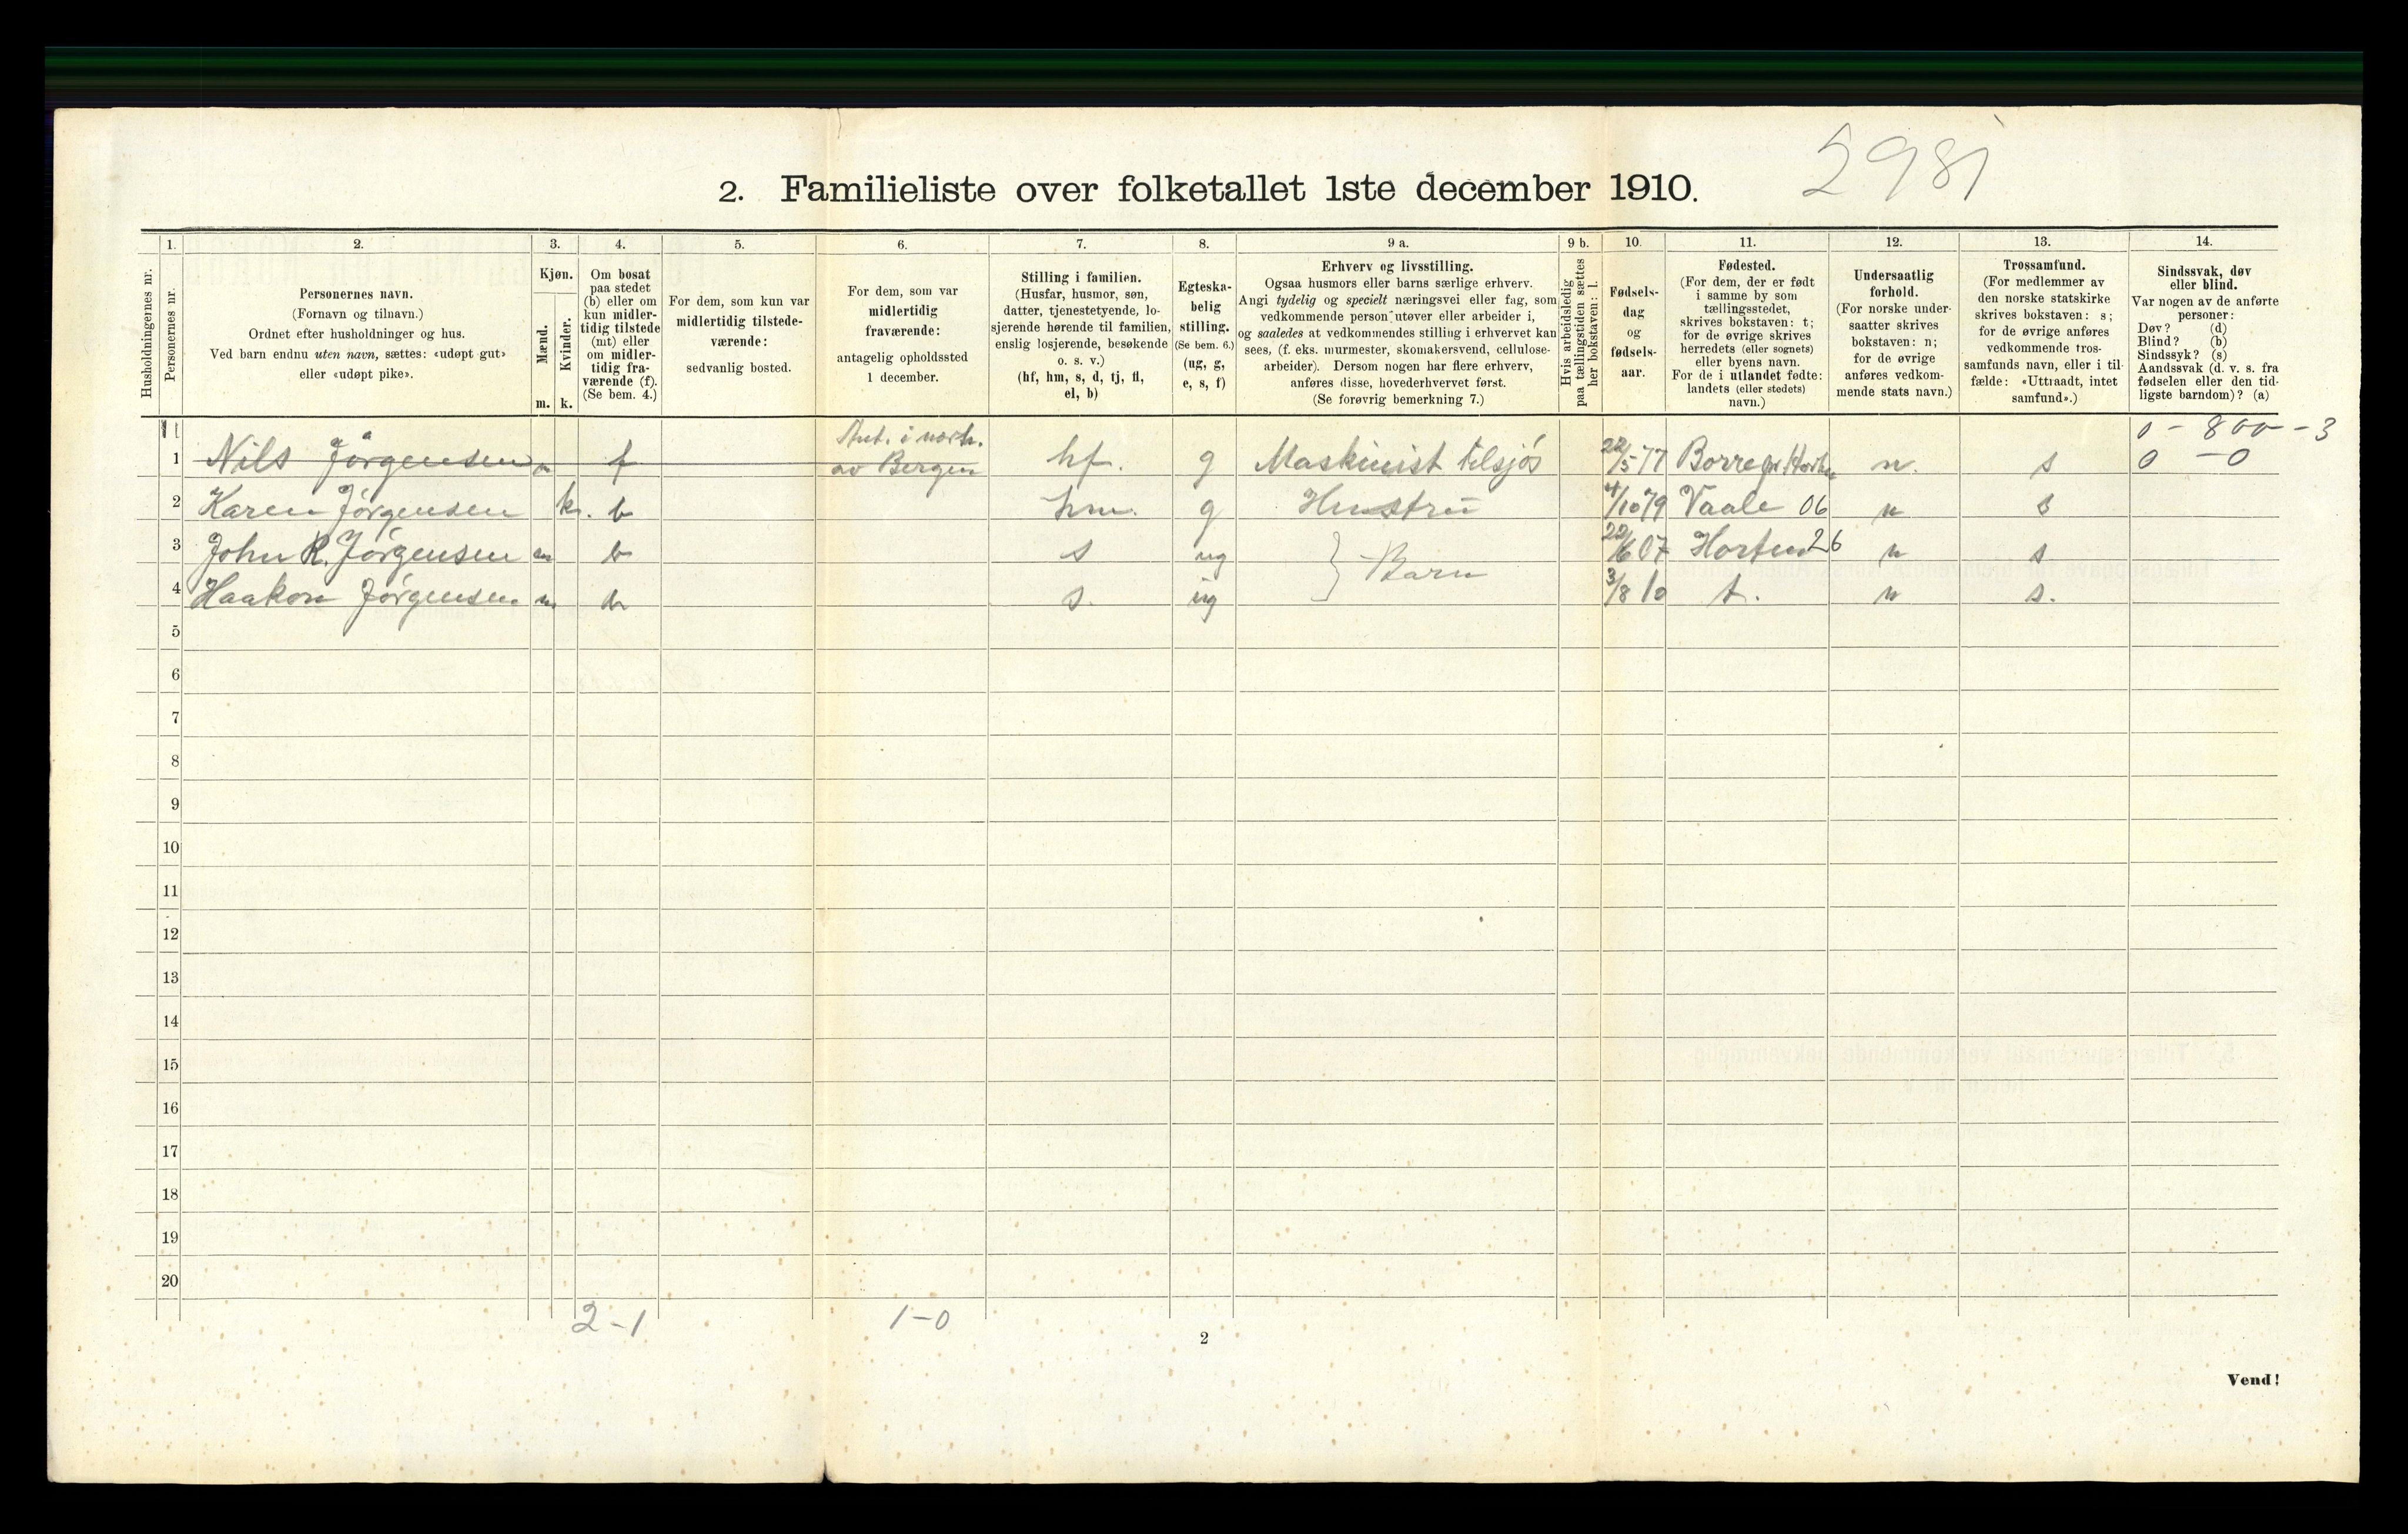 2981
2. Familieliste over folketallet 1ste december 1910.
Husholdningernes nr.
1.
Personernes nr.
2.
Personernes navn.
(Fornavn og tilnavn.)
Ordnet efter husholdninger og hus.
Ved barn endnu uten navn, sættes: «udøpt gut»
eller «udøpt pike».
3.
Kjøn.
Mænd.
Kvinder.
m. k.
4.
Om bosat
paa stedet
(b) eller om
kun midler-
tidig tilstede
(mt) eller
om midler-
tidig fra-
værende (f).
(Se bem. 4.)
5.
For dem, som kun var
midlertidig tilstede-
værende:
sedvanlig bosted.
6.
For dem, som var
midlertidig
fraværende:
antagelig opholdssted
1 december.
7.
Stilling i familien.
(Husfar, husmor, søn,
datter, tjenestetyende, lo-
sjerende hørende til familien,
enslig losjerende, besøkende
o. s. v.)
(hf, hm, s, d, tj, fl,
el, b)
8.
Egteska-
belig
stilling.
(Se bem. 6.)
(ug, g,
e, s, f)
9 a.
Erhverv og livsstilling.
Ogsaa husmors eller barns særlige erhverv.
Angi tydelig og specielt næringsvei eller fag, som
vedkommende person utøver eller arbeider i,
og saaledes at vedkommendes stilling i erhvervet kan
sees, (f. eks. murmester, skomakersvend, cellulose-
arbeider). Dersom nogen har flere erhverv,
anføres disse, hovederhvervet først.
(Se forøvrig bemerkning 7.)
9 b.
Hvis arbeidsledig
paa tællingstiden sættes
her bokstaven: l.
10.
Fødsels-
dag
og
fødsels-
aar.
11.
Fødested.
(For dem, der er født
i samme by som
tællingsstedet,
skrives bokstaven: t;
for de øvrige skrives
herredets (eller sognets)
eller byens navn.
For de i utlandet fødte:
landets (eller stedets)
navn.)
12.
Undersaatlig
forhold.
(For norske under-
saatter skrives
bokstaven: n;
for de øvrige
anføres vedkom-
mende stats navn.)
13.
Trossamfund.
(For medlemmer av
den norske statskirke
skrives bokstaven: s;
for de øvrige anføres
vedkommende tros-
samfunds navn, eller i til-
fælde: «Uttraadt, intet
samfund».)
14.
Sindssvak, døv
eller blind.
Var nogen av de anførte
personer:
Døv? (d)
Blind? (b)
Sindssyk? (s)
Aandssvak (d. v. s. fra
fødselen eller den tid-
ligste barndom)? (a)
Ant. i nærh. 0 - 800 - 3
1 Nils Jørgensen m f av Bergen hf. g Maskinist tilsjøs 22/5 77 Borre pr. Horten n. s 0 - 0
2 Karen Jørgensen k. b hm. g Hustru 4/10 79 Vaale 06 n s
3 John R. Jørgensen m b s ug } Barn 22/6 07 Horten 26 n s
4 Haakon Jørgensen m b s. ug 3/8 10 t. n s.
5
6
7
8
9
10
11
12
13
14
15
16
17
18
19
20
2-1 1-0
2
Vend!